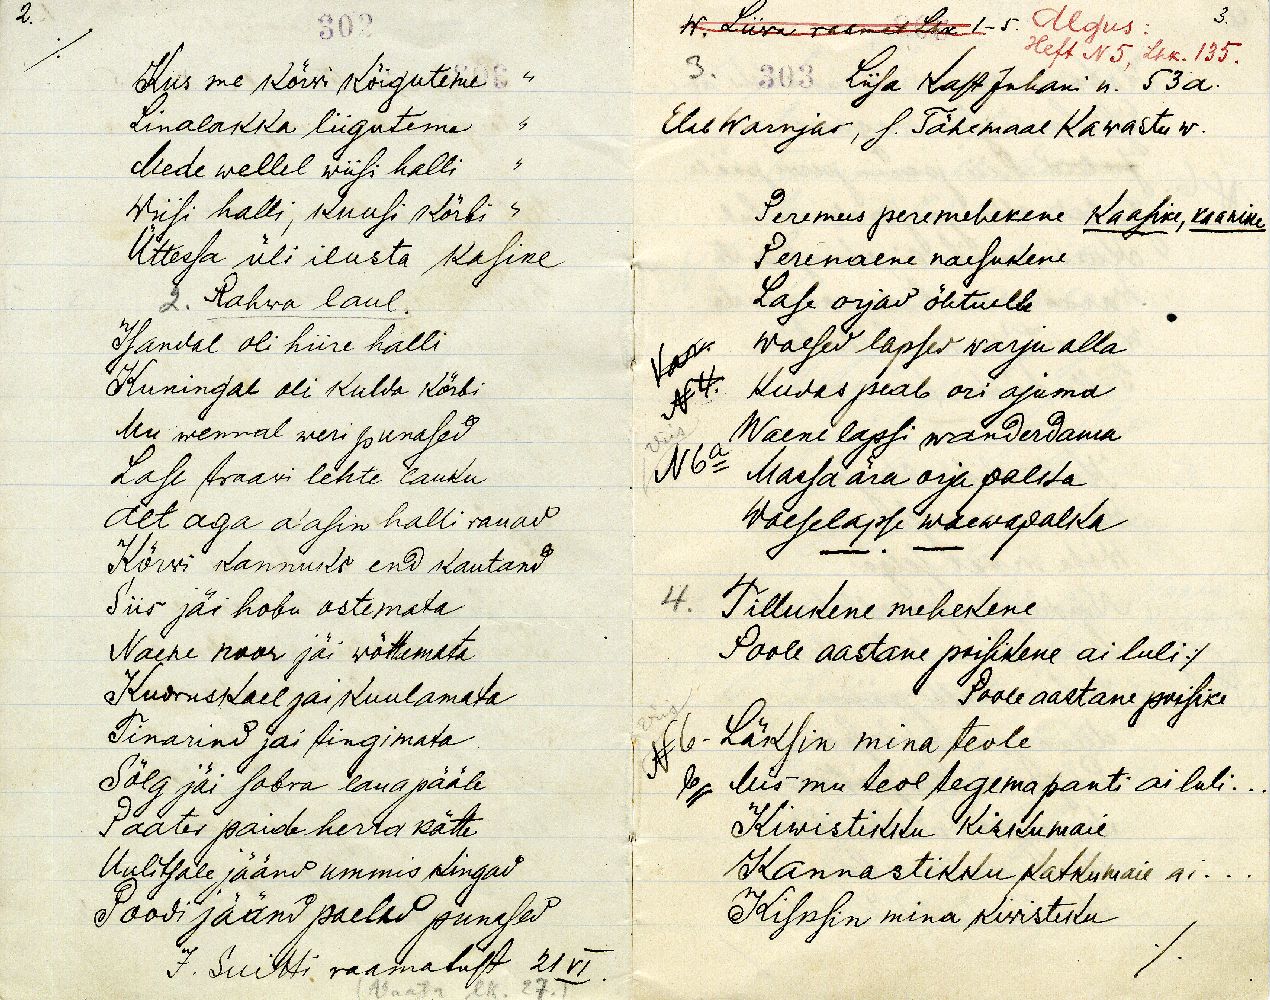 2.
302
./.
Kus me kõrvi kõiguteme "
Linalakka liiguteme "
Mede wellel wiisi halli "
Wiisi halli, kuusi kõrbi "
Üttessa üli ilusta kasine
2. Rahwa laul.
Isandal oli hiire halli
Kuningal oli kulda kõrbi
Mu wennal weri punased
Lase traavi lehte lauku
Alt aga a'asin halli rauad
Kõrvi kannuks end kautand
Siis jäi hobu ostemata
Naene noor jäi wõttemata
Kudruskael jäi kuulamata
Tinarind jäi tingimata
Sõlg jäi sobra laua pääle
Paater paide herra kätte
Uulitsale jäänd ummis kingad
Poodi jäänd paelad punased
J. Suitti raamatust 21 VI.
(Vaata lk. 27.)
W. Liiva raamat Lhk 1-5.
Algus:
Heft N 5, Lhk. 135.
3.
3. 303
Liisa Kast Juhani n. 53 a.
Elab Warnjas, s. Tähemaal Kawastu w.
Peremees peremehekene kaasike, kaanike
Perenaene naesukene
Lase orjad õhtuelle
Waesed lapsed warju alla
Kudas peab ori ajuma
Waene lapsi wanderdama
Massa ära orja palka
Waeselapse waewapalka
Var.
N 4.
Viis
N 6a
4. Tillukene mehekene
Poole aastane poisikene ai luli :/
Poole aastane poisike
Viis
N 6 - Läksin mina teole
Mis mu teol tegema panti ai luli...
Kiwistikku kiskumaie
Kannastikku katkumaie ai...
Kisksin mina kivistiku
./.